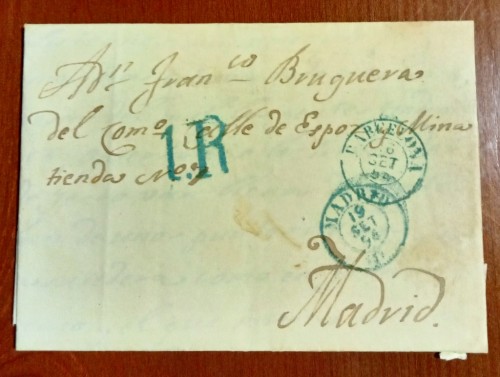 Adn Franco Bruguera
del Como Calle de Espoz y Mina
tienda No 7
1.R
BARCELONA
SET
MADRID
19
SET
Madrid.